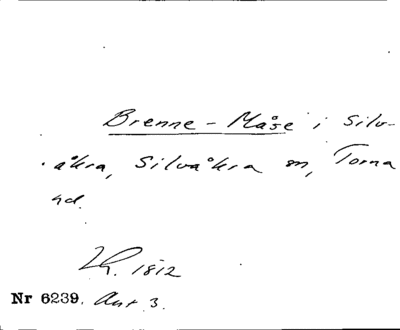 Brenne-Måse i Silv-
åkra, Silvåkra sn, Torna
hd.
Lh. 1812
Nr 6239. Ant. 3.